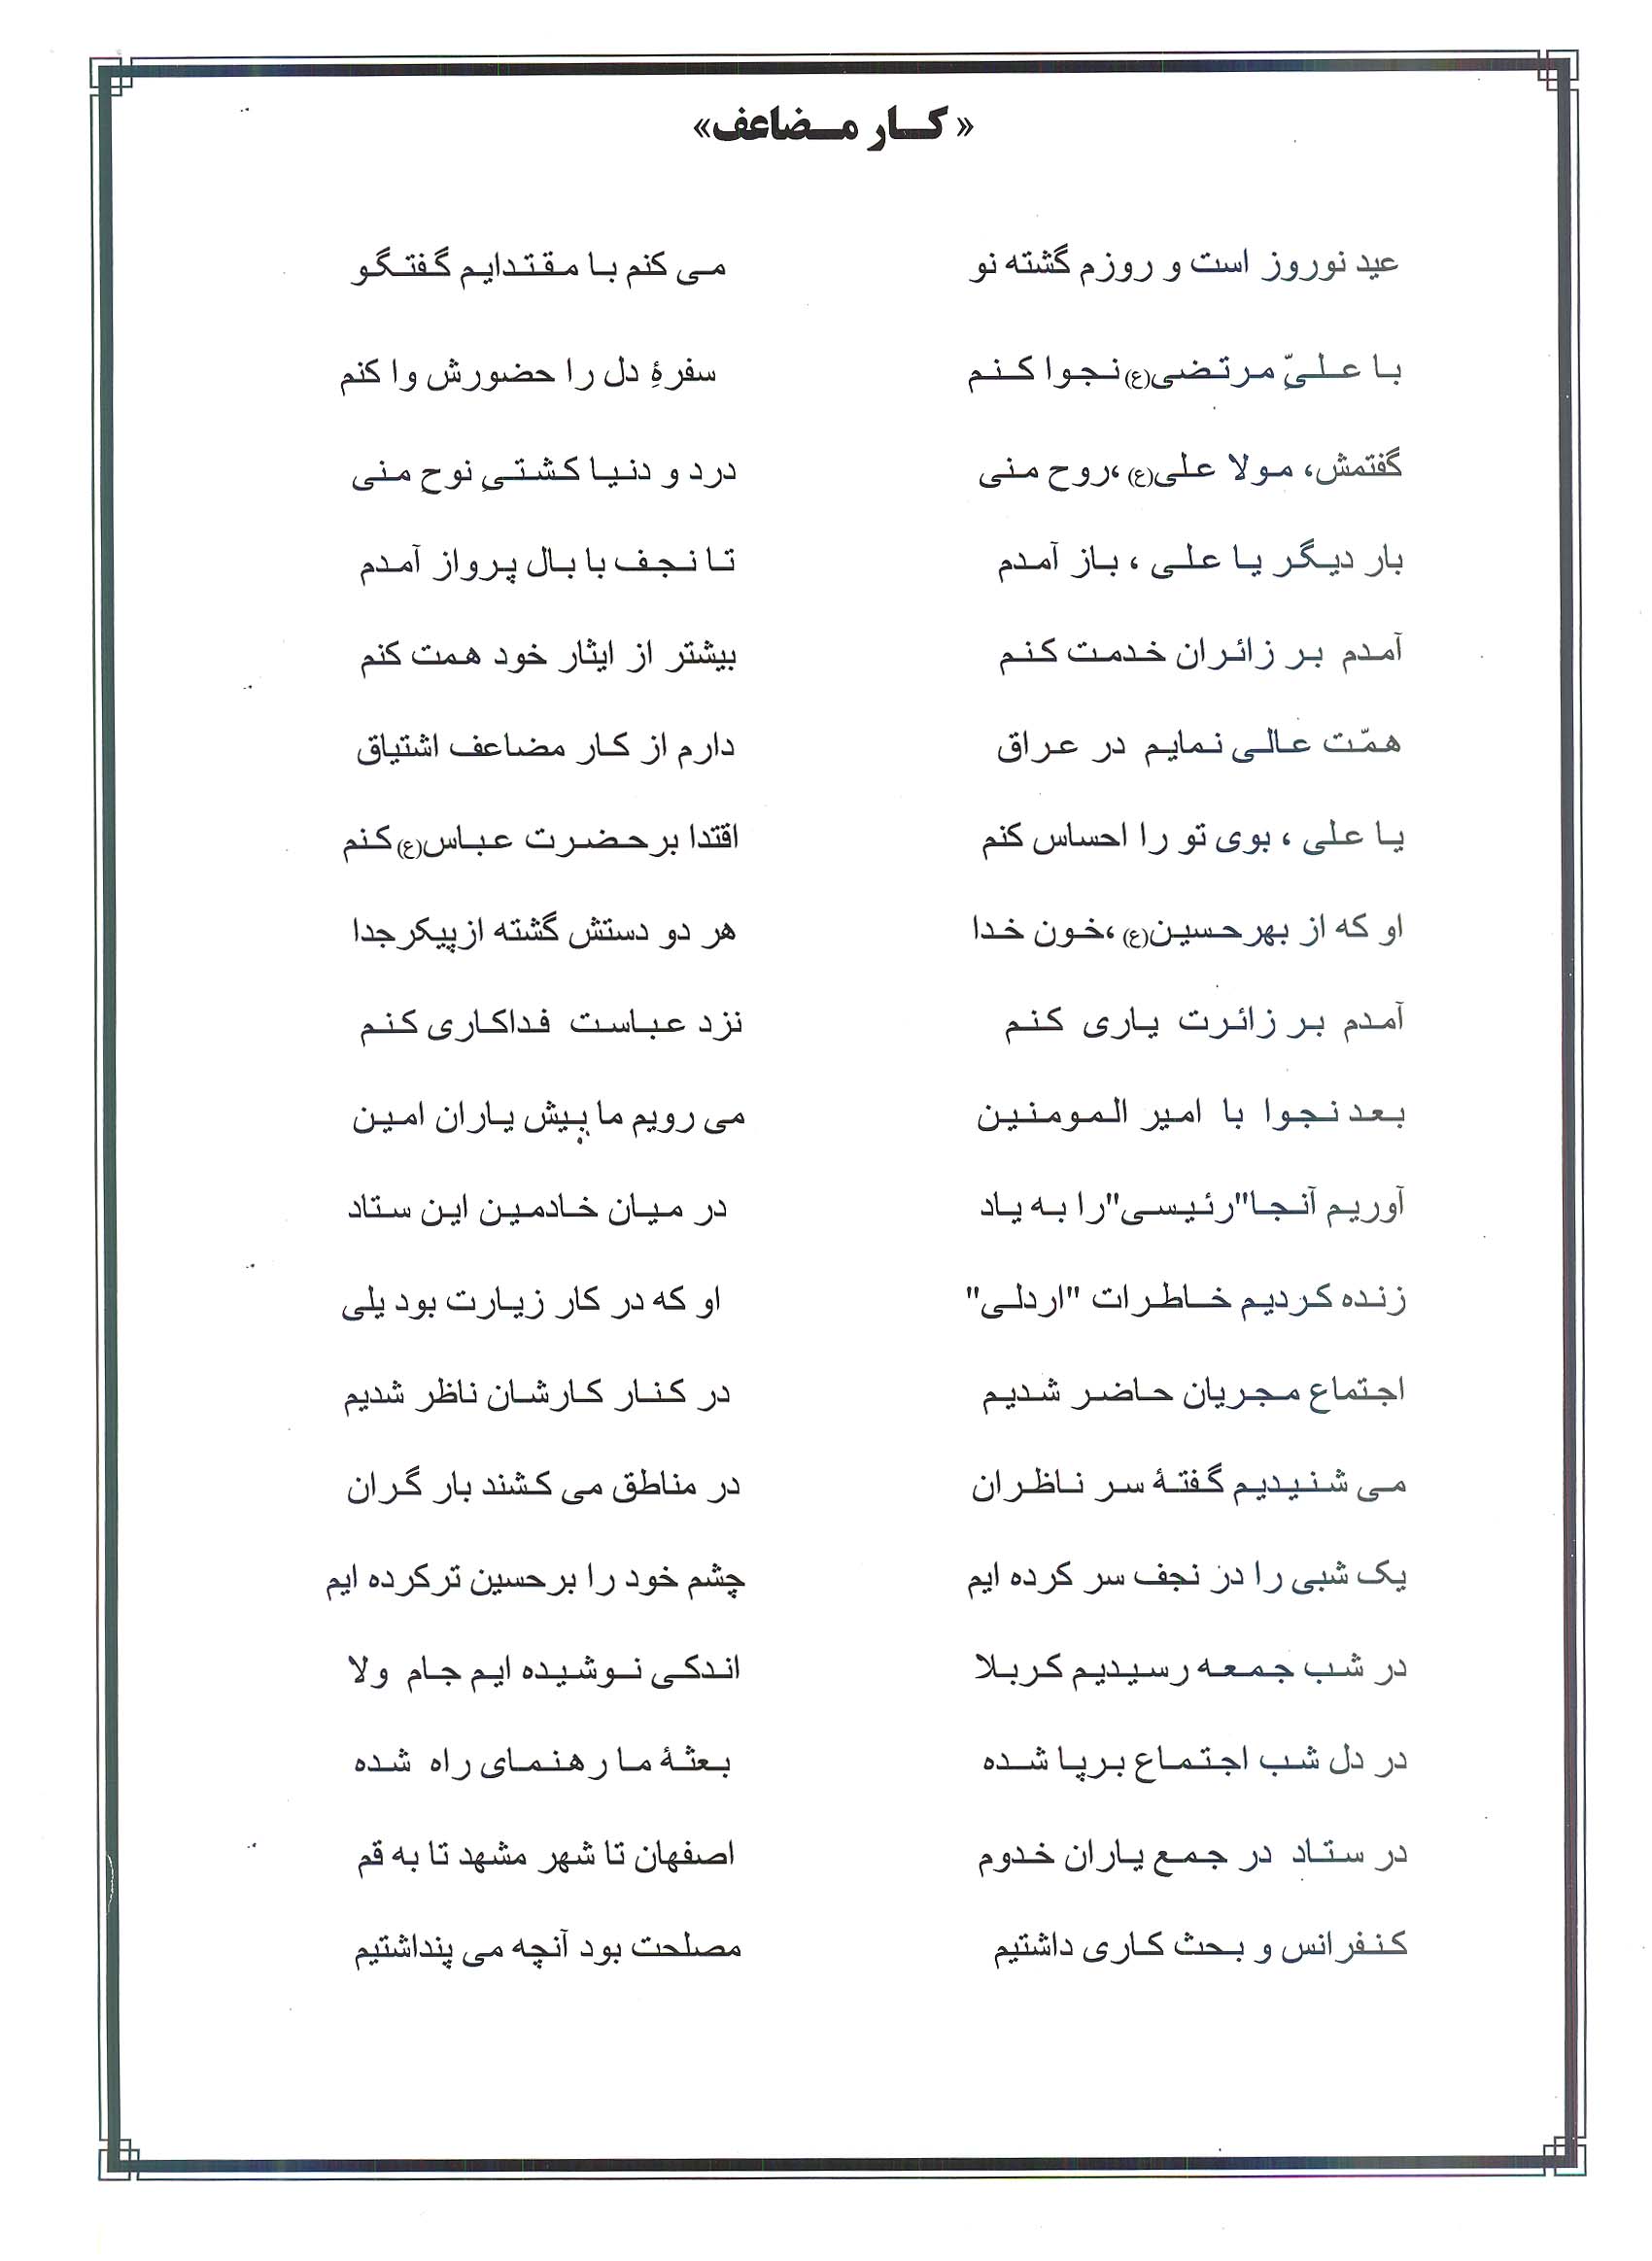 « کار مضاعف»
عید نوروز است و روزم گشته نو می کنم با مقتدایم گفتگو
با علیِّ مرتضی(ع) نجوا کنم سفرۀِ دل را حضورش وا کنم
گفتمش، مولا علی(ع) ،روح منی درد و دنیا کشتیِ نوحِ منی
بار دیگر یا علی ، باز آمدم تا نجف با بال پرواز آمدم
آمدم بر زائران خدمت کنم بیشتر از ایثار خود همت کنم
همّت عالی نمایم در عراق دارم از کار مضاعف اشتیاق
یا علی ، بوی تو را احساس کنم اقتدا برحضرت عباس(ع) کنم
او که از بهرحسین(ع) ،خون خدا هر دو دستش گشته ازپیکرجدا
آمدم بر زائرت یاری کنم نزد عباست فداکاری کنم
بعد نجوا با امیر المومنین می رویم ما پیش یاران امین
آوریم آنجا"رئیسی"را به یاد در میان خادمین این ستاد
زنده کردیم خاطرات "اردلی" او که در کار زیارت بود یلی
اجتماع مجریان حاضر شدیم در کنار کارشان ناظر شدیم
می شنیدیم گفتۀ سر ناظران در مناطق می کشند بار گران
یک شبی را در نجف سر کرده ایم چشم خود را برحسین ترکرده ایم
در شب جمعه رسیدیم کربلا اندکی نوشیده ایم جام ولا
در دل شب اجتماع برپا شده بعثۀ ما رهنمای راه شده
در ستاد در جمع یاران خدوم اصفهان تا شهر مشهد تا به قم
کنفرانس و بحث کاری داشتیم مصلحت بود آنچه می پنداشتیم